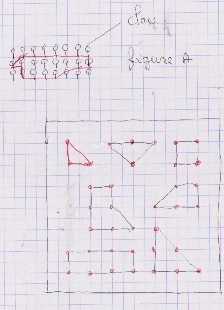 clou
figure A